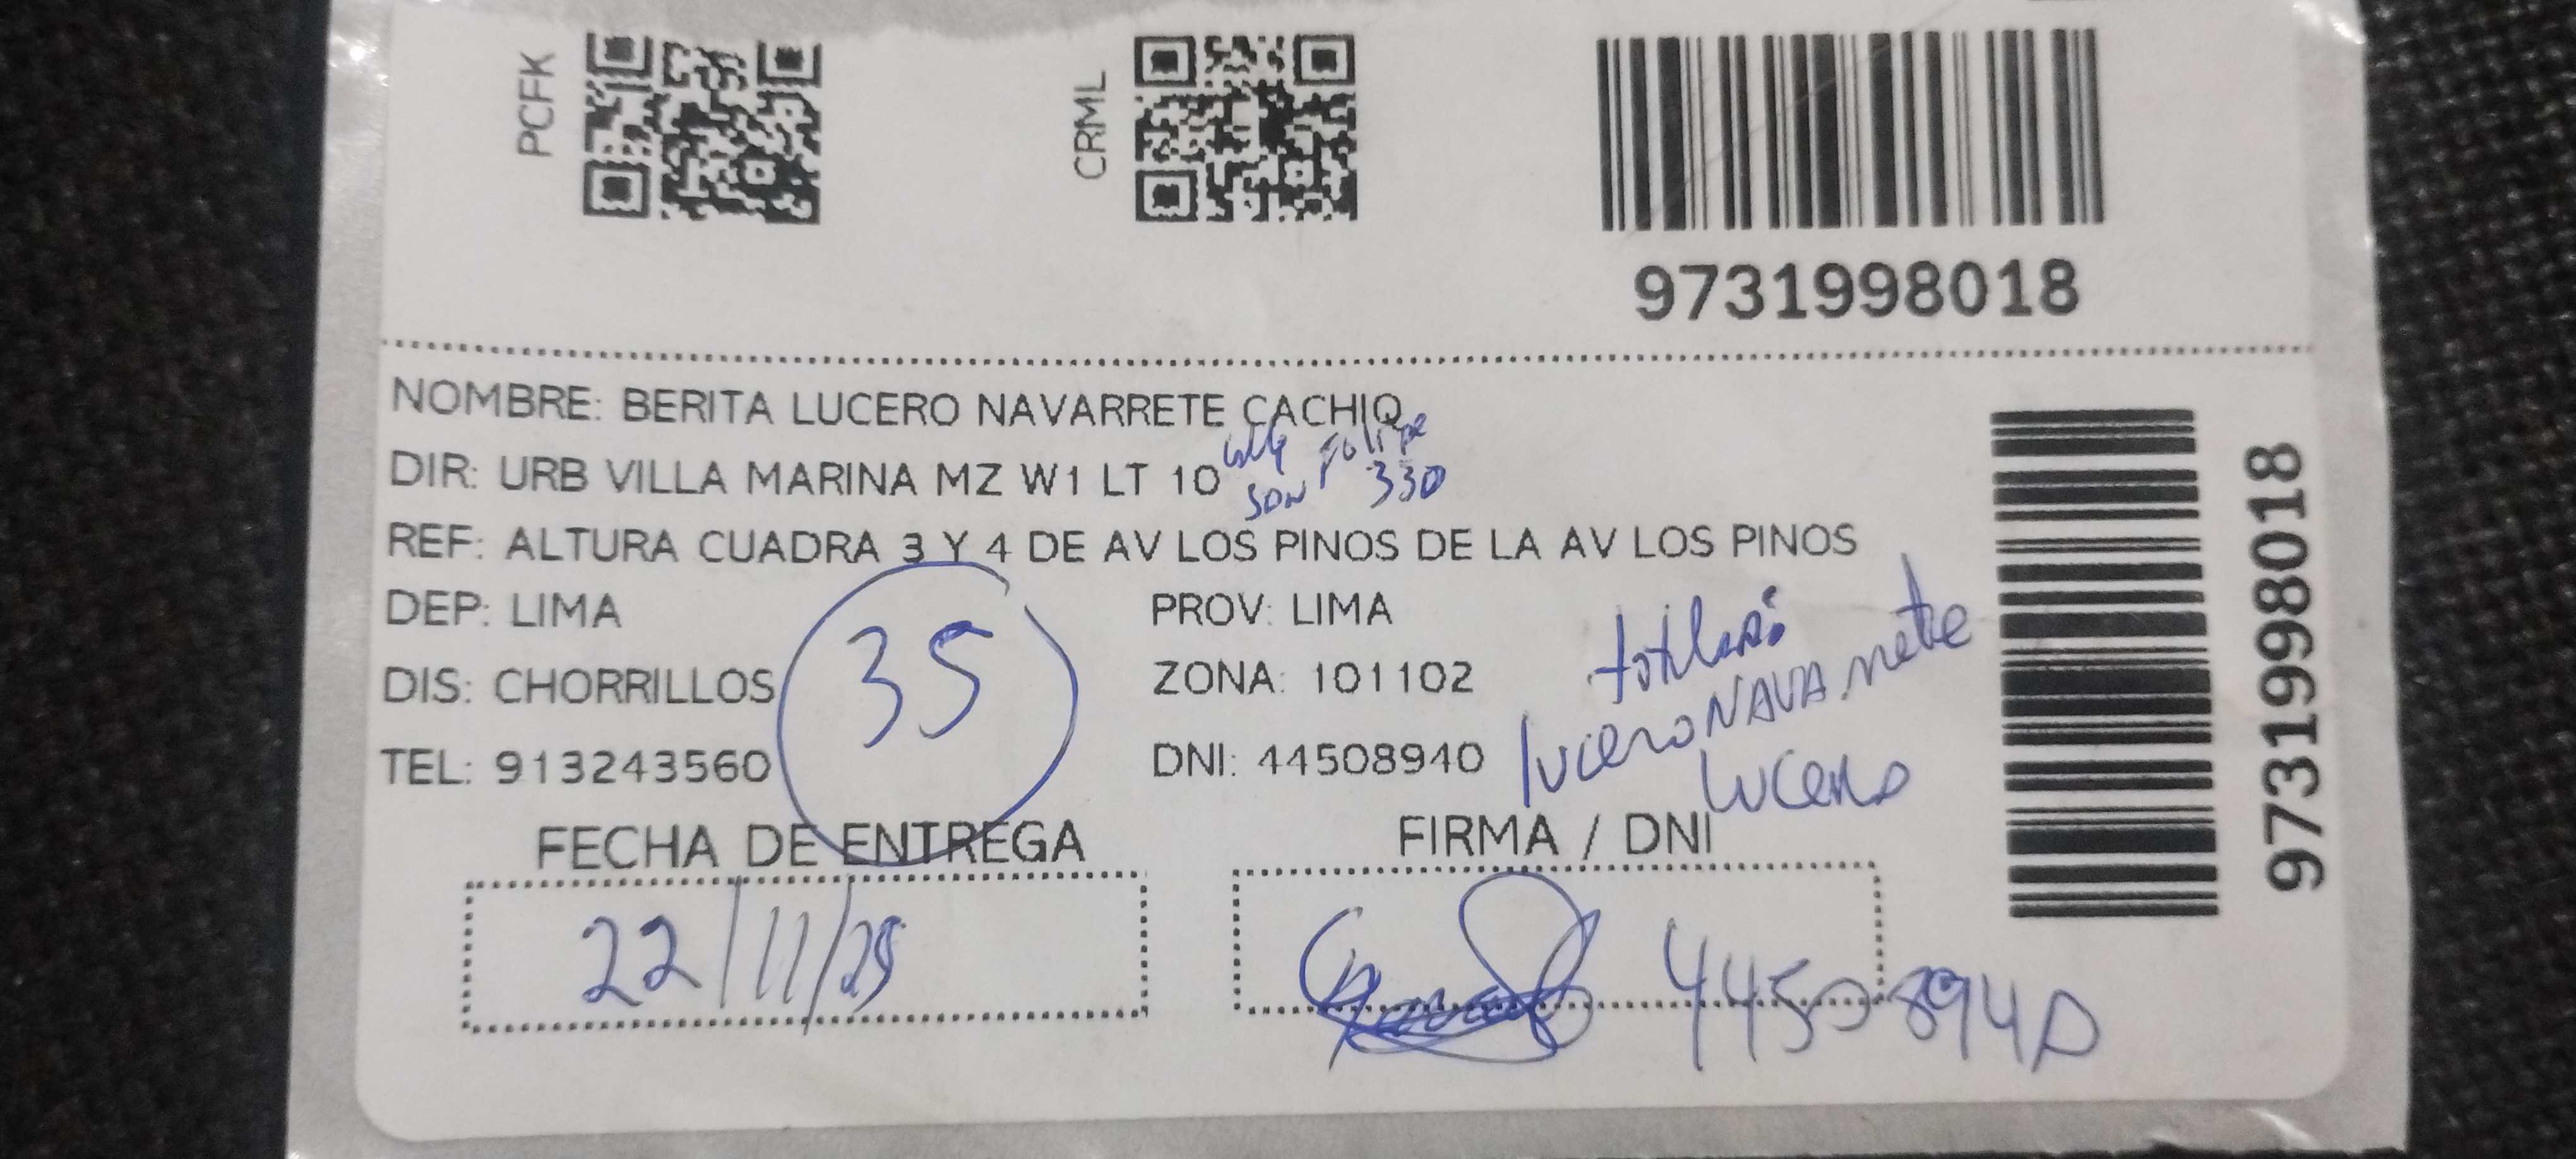 PCFK
CRML
9731998018
NOMBRE: BERITA LUCERO NAVARRETE CACHIQ
DIR: URB VILLA MARINA MZ W1 LT 10
SAN Felipe
330
REF: ALTURA CUADRA 3 Y 4 DE AV LOS PINOS DE LA AV LOS PINOS
DEP: LIMA
PROV: LIMA
DIS: CHORRILLOS
ZONA: 101102
TEL: 913243560
DNI: 44508940
35
lucero NAVArrete
lucero
9731998018
FECHA DE ENTREGA
FIRMA / DNI
22/11/25
44508940